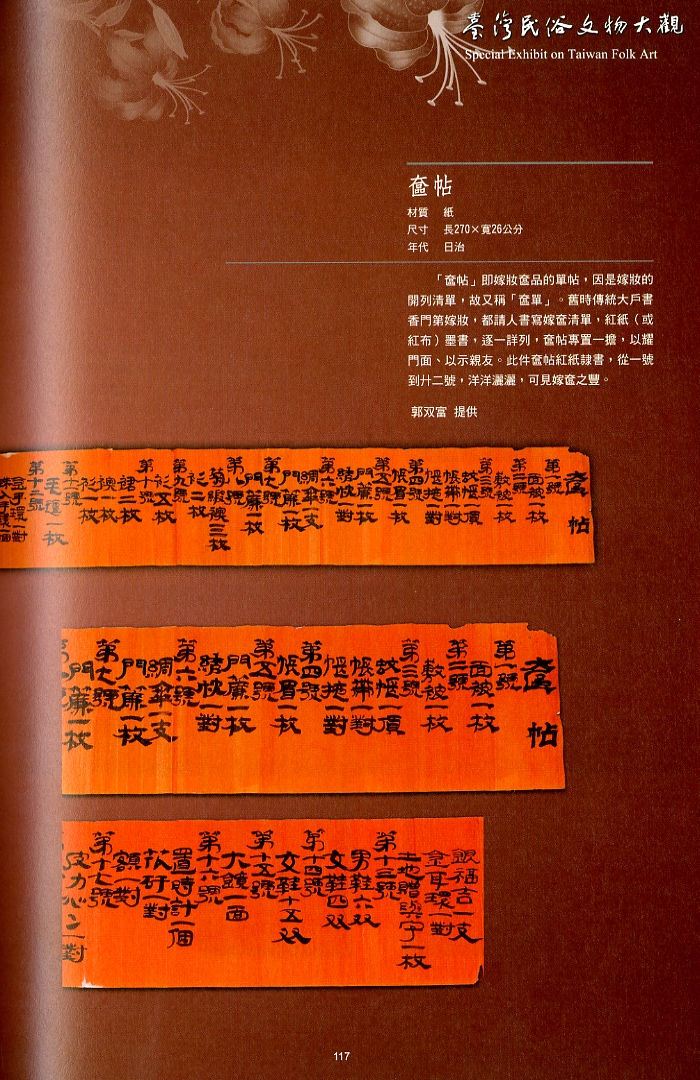 臺灣民俗文物大觀
Special Exhibit on Taiwan Folk Art
奩帖
材質 紙
尺寸 長270×寬26公分
年代 日治
「奩帖」即嫁妝奩品的單帖，因是嫁妝的
開列清單，故又稱「奩單」。舊時傳統大戶書
香門第嫁妝，都請人書寫嫁奩清單，紅紙（或
紅布）墨書，逐一詳列，奩帖專置一擔，以耀
門面、以示親友。此件奩帖紅紙隸書，從一號
到廿二號，洋洋灑灑，可見嫁奩之豐。
郭双富 提供
奩帖
第一號
面被一枚
第二號
敷被一枚
第三號
帳帶一對
第四號
帳眉一枚
第五號
門簾一枚
第六號
綢傘一支
門簾一枚
第七號
門簾一枚
第八號
第九號
衫二枚
第十號
衫五枚
裙二枚
衫一枚
第十一號
毛毯一枚
第十二號
奩帖
第一號
面被一枚
第二號
敷被一枚
第三號
帳帶一對
第四號
帳眉一枚
第五號
門簾一枚
結忱一對
第六號
綢傘一支
門簾一枚
第七號
門簾一枚
金耳環一對
第十三號
男鞋六双
女鞋四双
第十四號
女鞋十五双
第十五號
大鏡一面
第十六號
置時計一個
額一對
第十七號
117